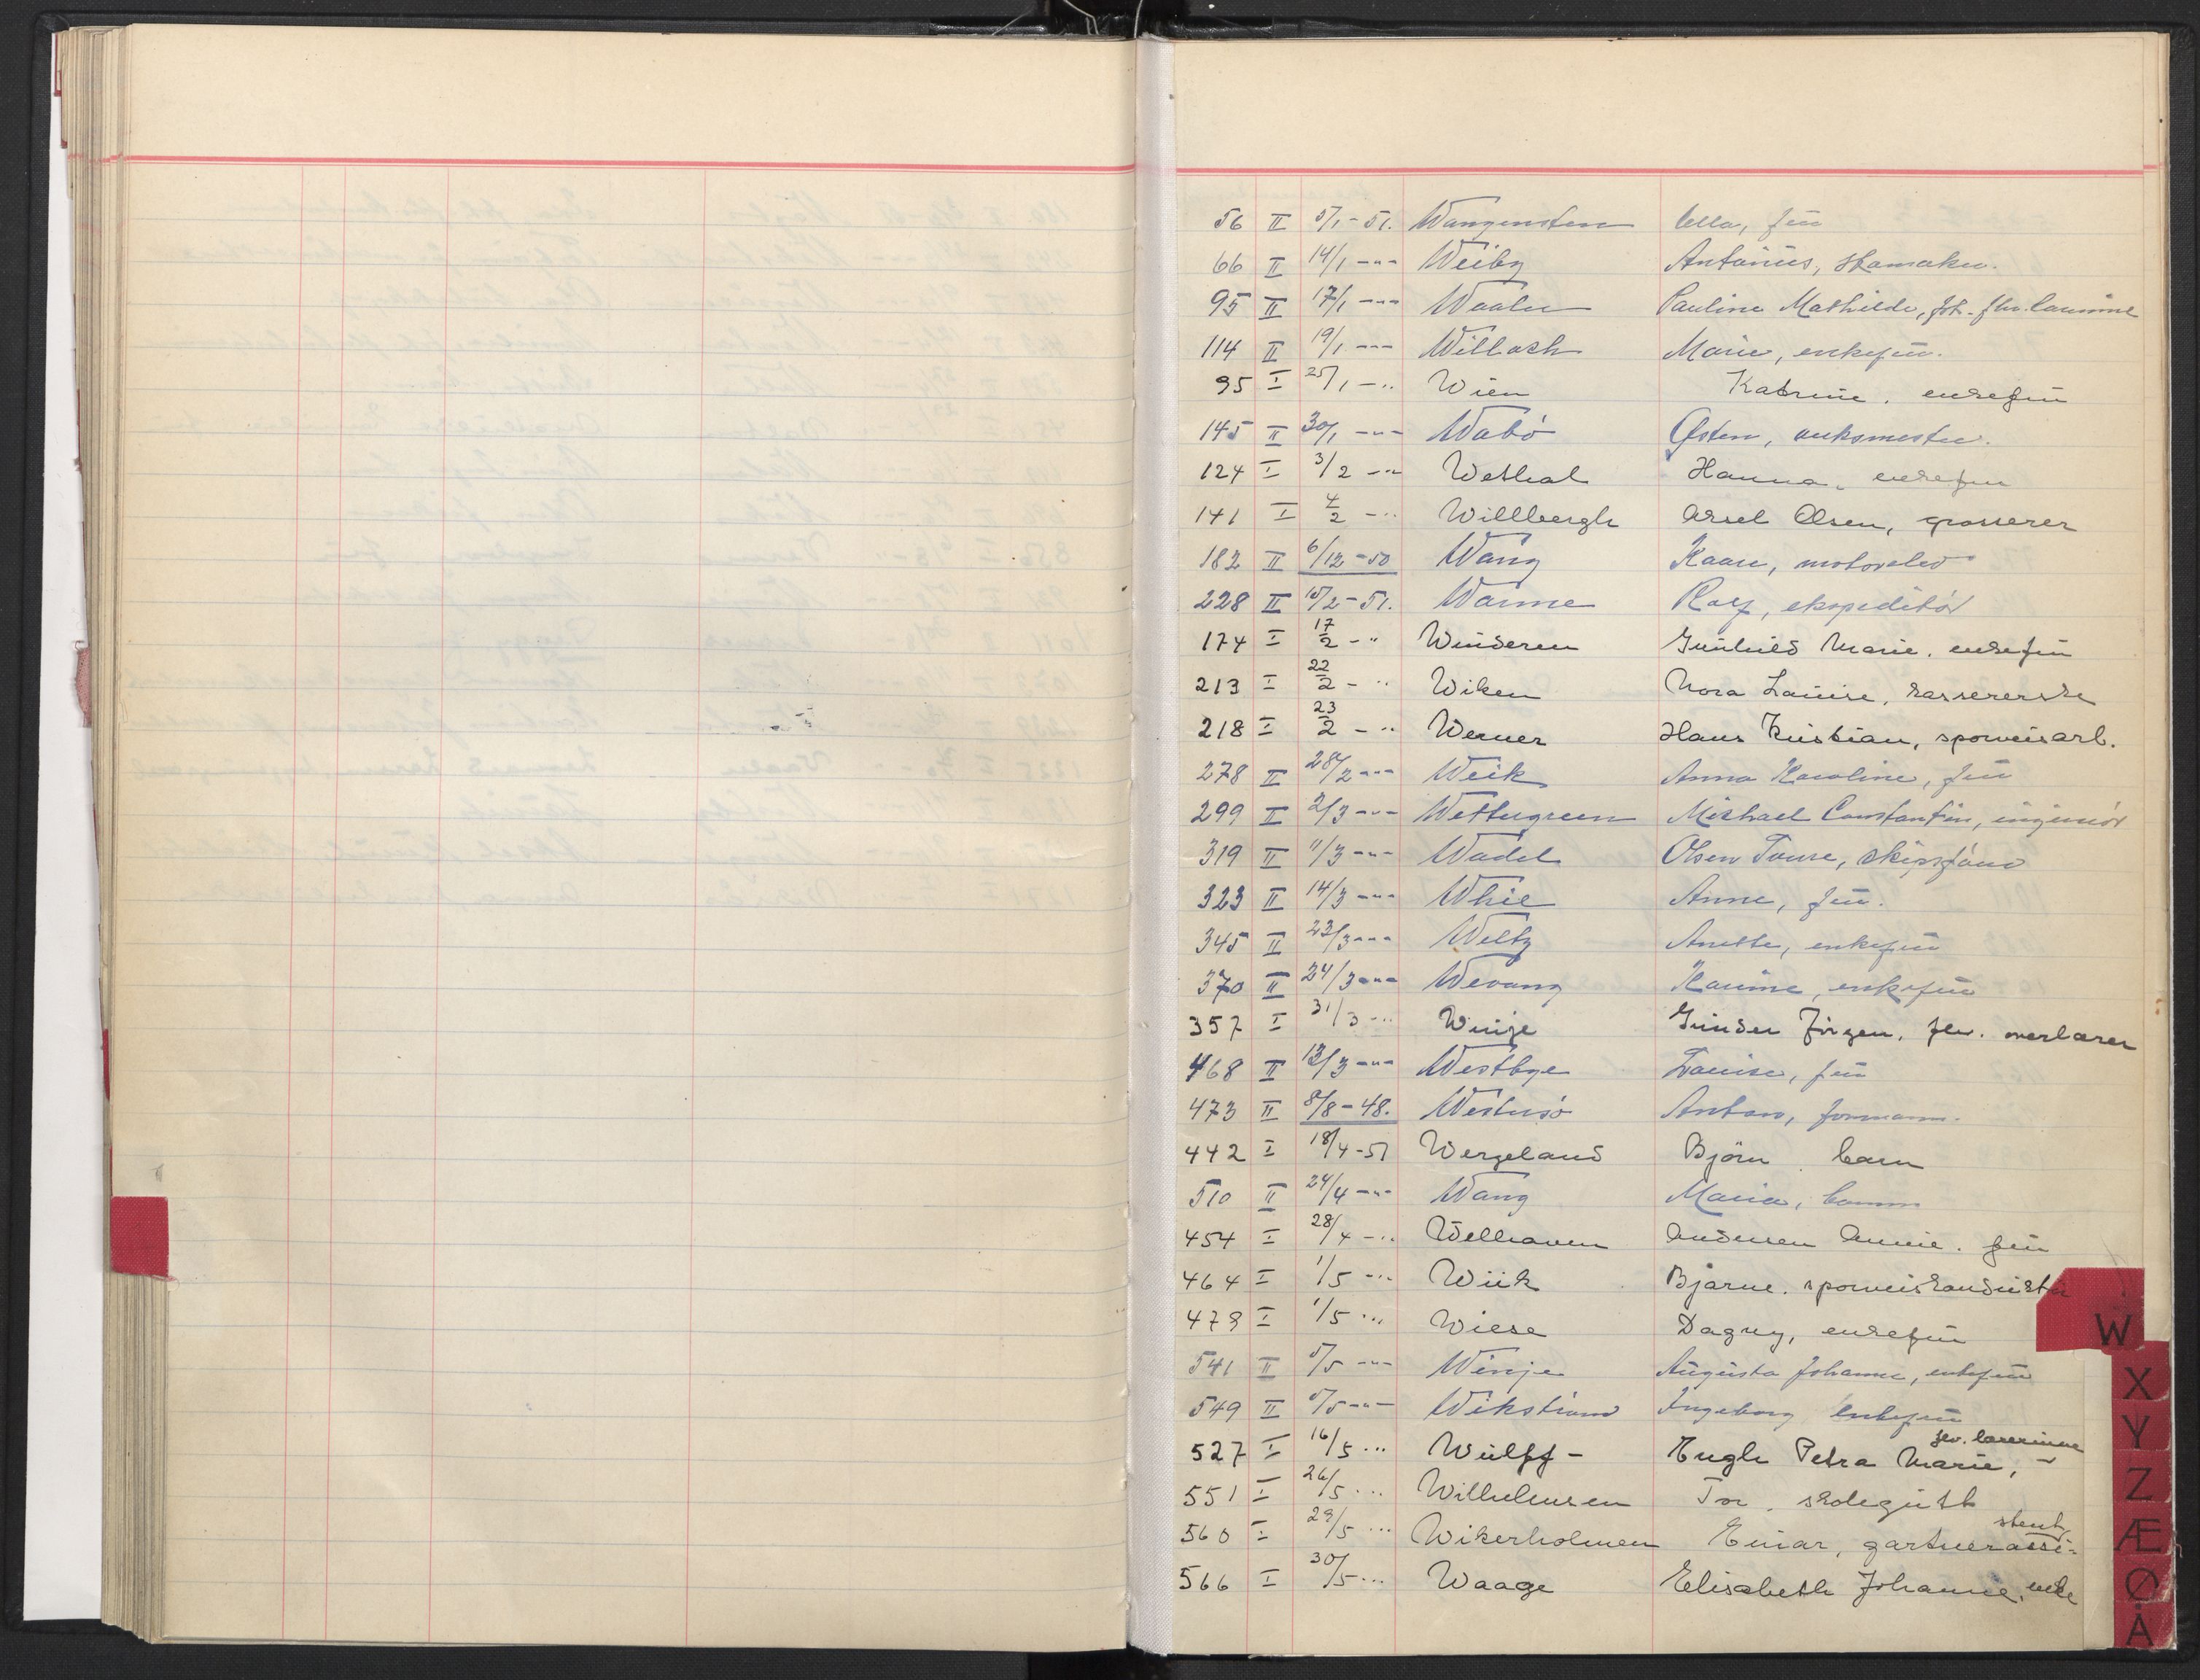 56 II 5/1-51. Wangensten Ella, frü
66 II 14/1 -"- Weiby Antonius, skomaker.
95 II 17/1 -"- Waaler Pauline Mathilde, fhv.
114 II 19/1 -"- Willoch Marie, enkefrü.
95 I 25/1 -" Wien Katrine, enkefrü
145 II 30/1 -"- Wabö Østen,
124 I 3/2 -" Wethal Hanna, enkefrü
141 I 4/2 -" Willbergh Aksel Olsen, grosserer
182 II 6/12-50 Wang Kaare, motorelev
228 II 15/2-51. Warme Rolf, ekspeditör
174 I 17/2 -" Winderen Günhild Marie, enkefrü
213 I 22/2 -" Wiken Nora Loüise, kassererske
218 I 23/2 -" Werner Hans Kristian, sporveisarb.
278 II 28/2 -"- Weik Anna Karoline, frü
299 II 2/3 -"- Wettergreen Michael Constantin, ingeniör
319 II 11/3 -"- Wadel Olsen Tome, skipsförer
323 II 14/3 -"- Whie Anne, frü.
345 II 23/3 -"- Weltz Anette, enkefrü
370 II 24/3 -"- Wevang Karine, enkefrü
357 I 31/3 -" Winje Günder Jörgen, fhv. overlærer
468 II 13/3 -"- Westbye Loüise, frü
473 II 8/8-48. Westersö Anton, formann.
442 I 18/4-51 Wergeland Björn, barn
510 II 24/4 -"- Wang Maria,
454 I 28/4 -" Welhaven Andersen Annie, frü
464 I 1/5 -" Wiik Bjarne, sporveiskondüktör
479 I 1/5 -" Wiese Dagny, enkefrü
541 II 5/5 -"- Winje Aügüsta Johanne, enkefrü
549 II 5/5 -"- Wikström Ingeborg enkefrü
527 I 16/5 -" Wülff- Engh Petra Marie, fhv. lærerinne
551 I 26/5 -" Wilhelmsen Tor, skolegütt
560 I 29/5 -" Wikerholmen Einar, gartnerassi=stent
566 I 30/5 -" Waage Elisabeth Johanne, enke
W
X
Y
Z
Æ
Ø
Å